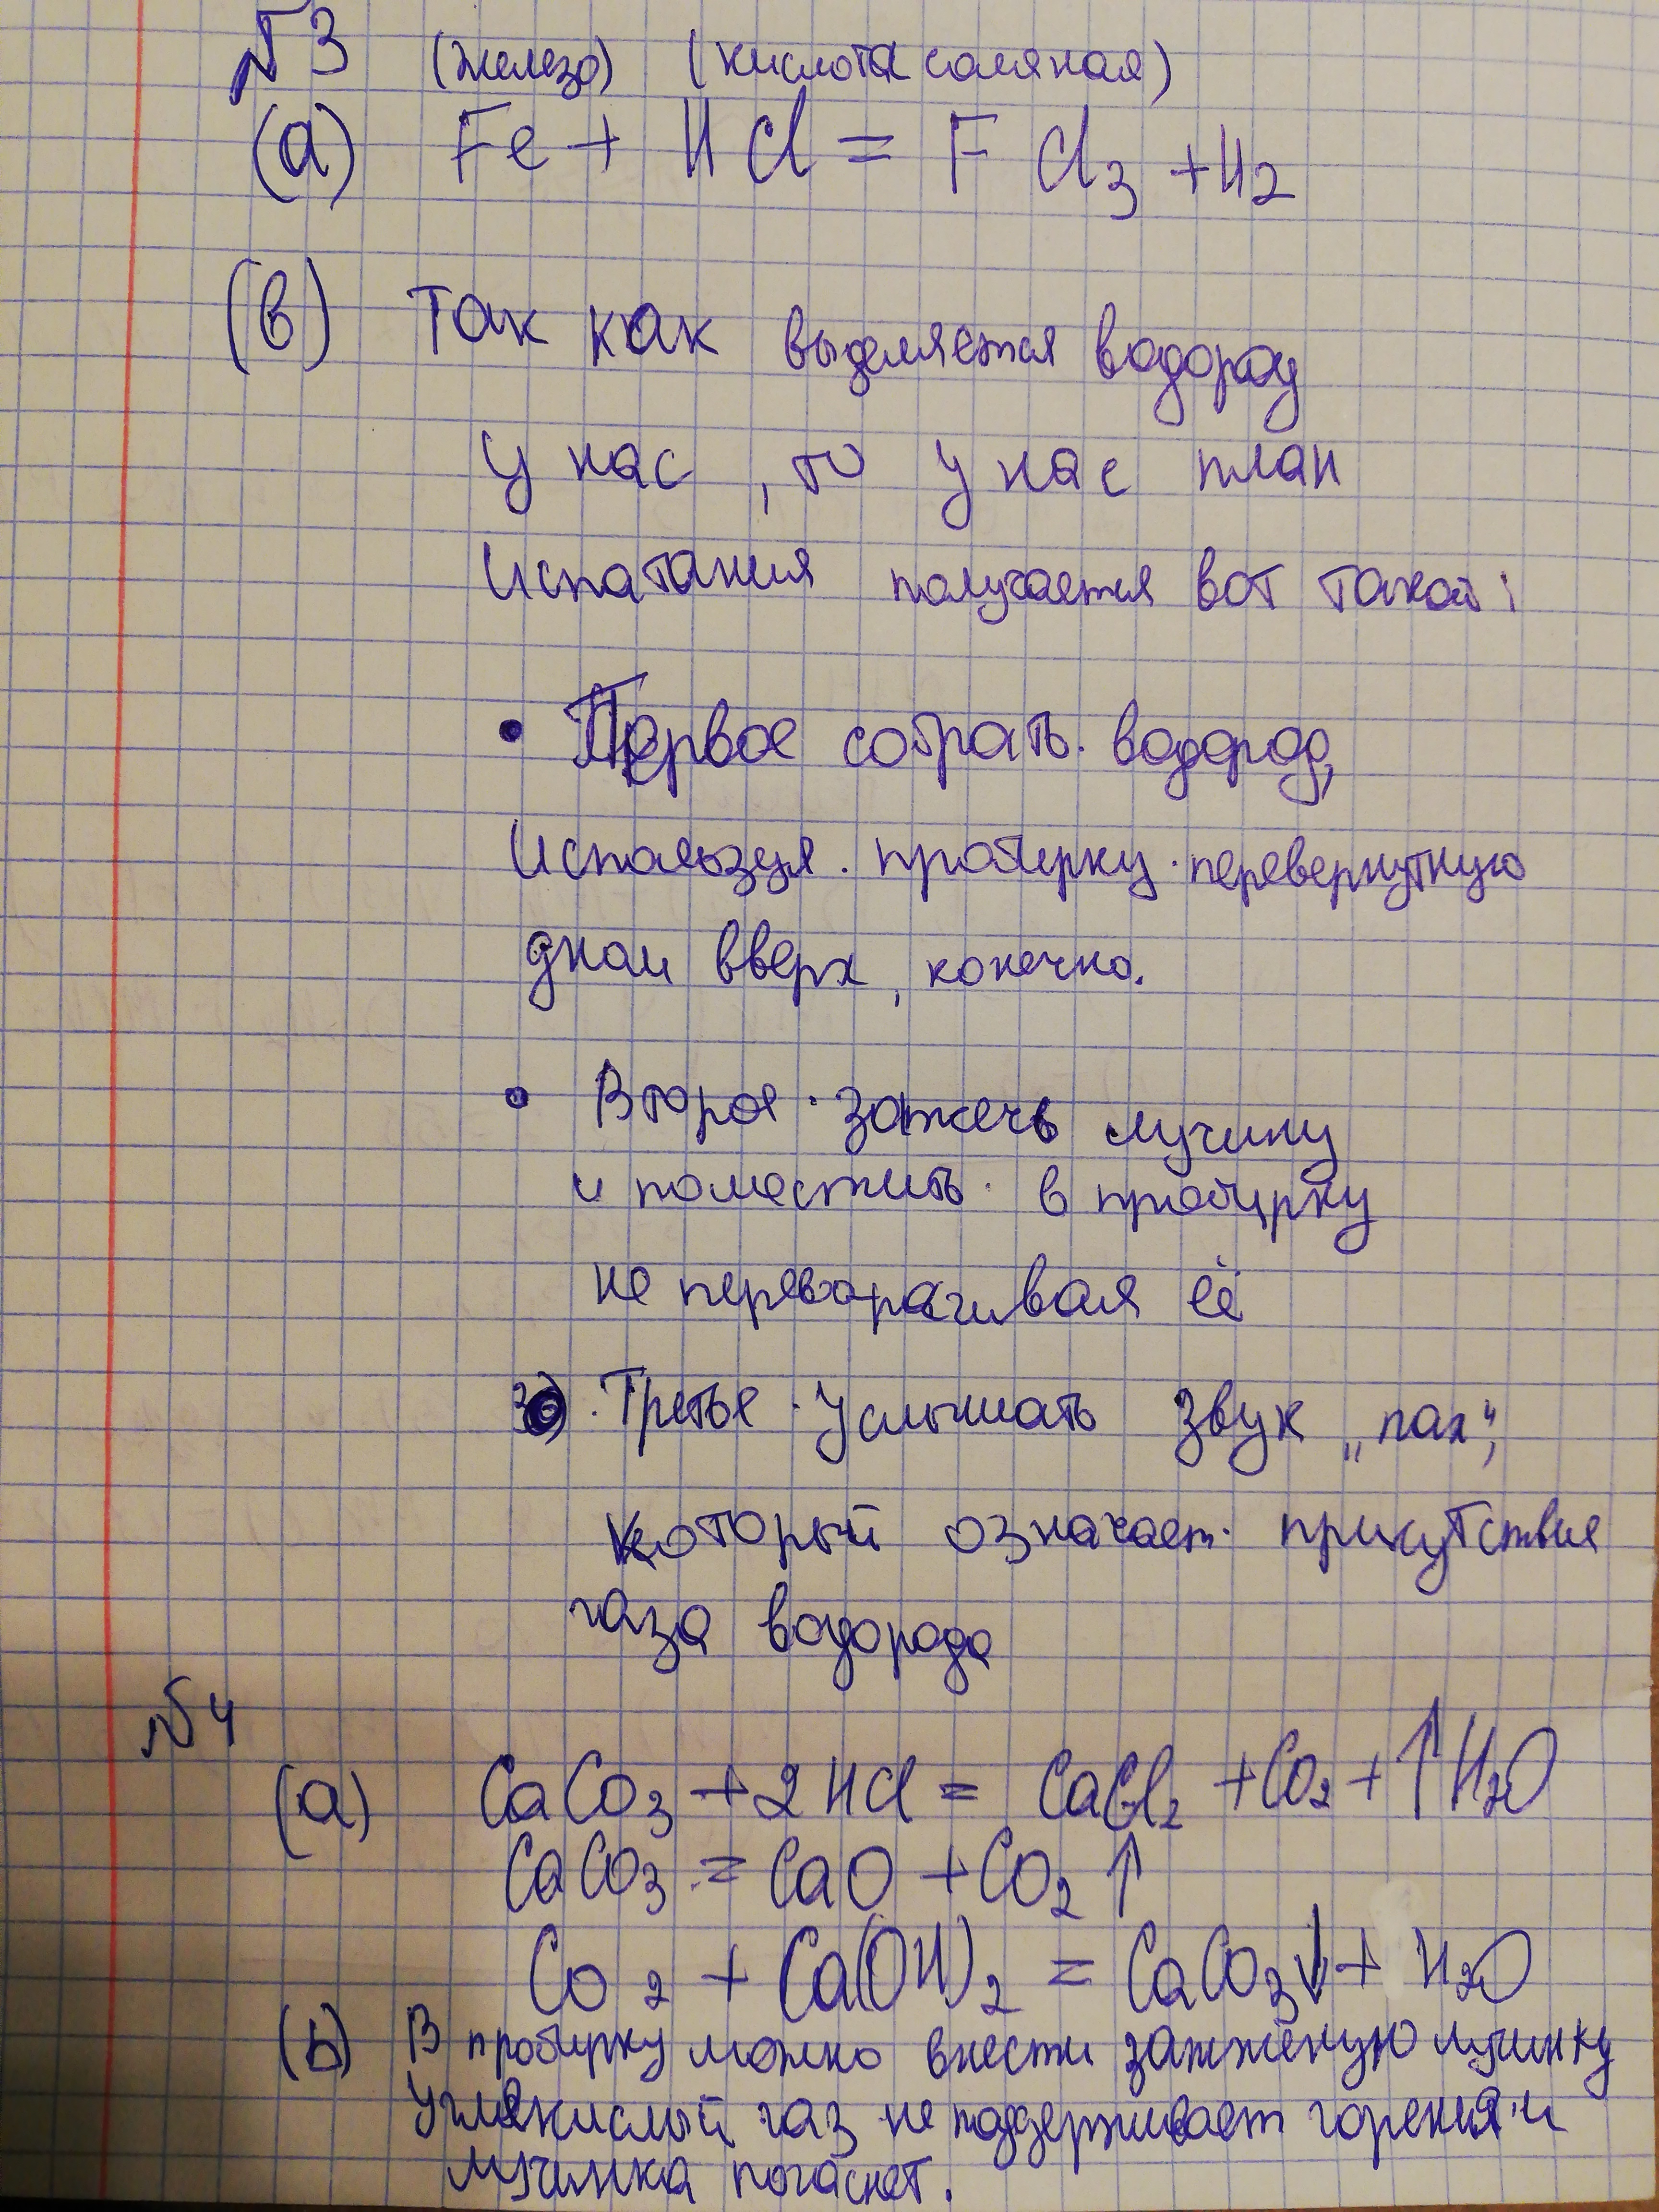 №3 (железо) (кислота соляная)
(а) Fe + HCl = F Cl₃ + H₂
(в) Так как выделяется водород
у нас, то у нас план
испатания получается вот такой:
• Первое собрать водород,
используя пробирку перевернутную
дном вверх, конечно.
• Второе зажечь лучину
и поместить в пробирку
не переворачивая её
3) Третье услышать звук „пах",
который означает присутствие
газа водорода
№4
(а) CaCO₃ + 2HCl = CaCl₂ + CO₂ + ↑H₂O
CaCO₃ = CaO + CO₂↑
CO₂ + Ca(OH)₂ = CaCO₃↓ + H₂O
(b) В пробирку можно внести зажжёную лучинку
Углекислый газ не поддерживает горения и
лучинка погаснет.